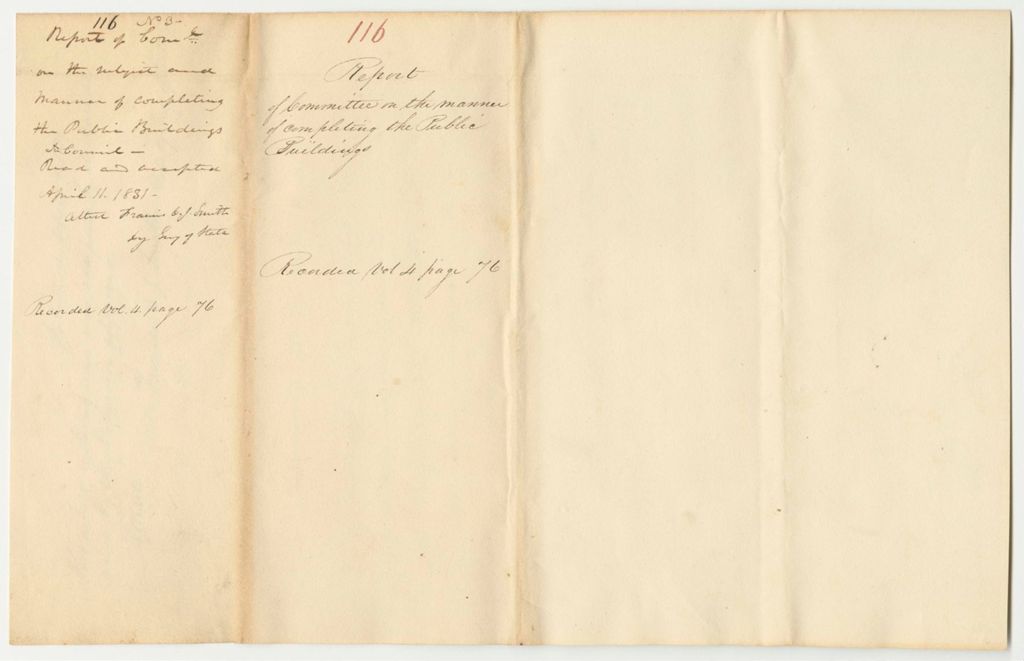 116 No 3-
Report of Comtee
on the subject and
Manner of completing
the Public Buildings
In Council —
Read and accepted
April 11. 1831-
Attest Francis O. J. Smith
by Secy of State
Recorded Vol. 4. page 76
116
Report
of Committee on the manner
of completing the Public
Buildings
Recorded Vol 4 page 76